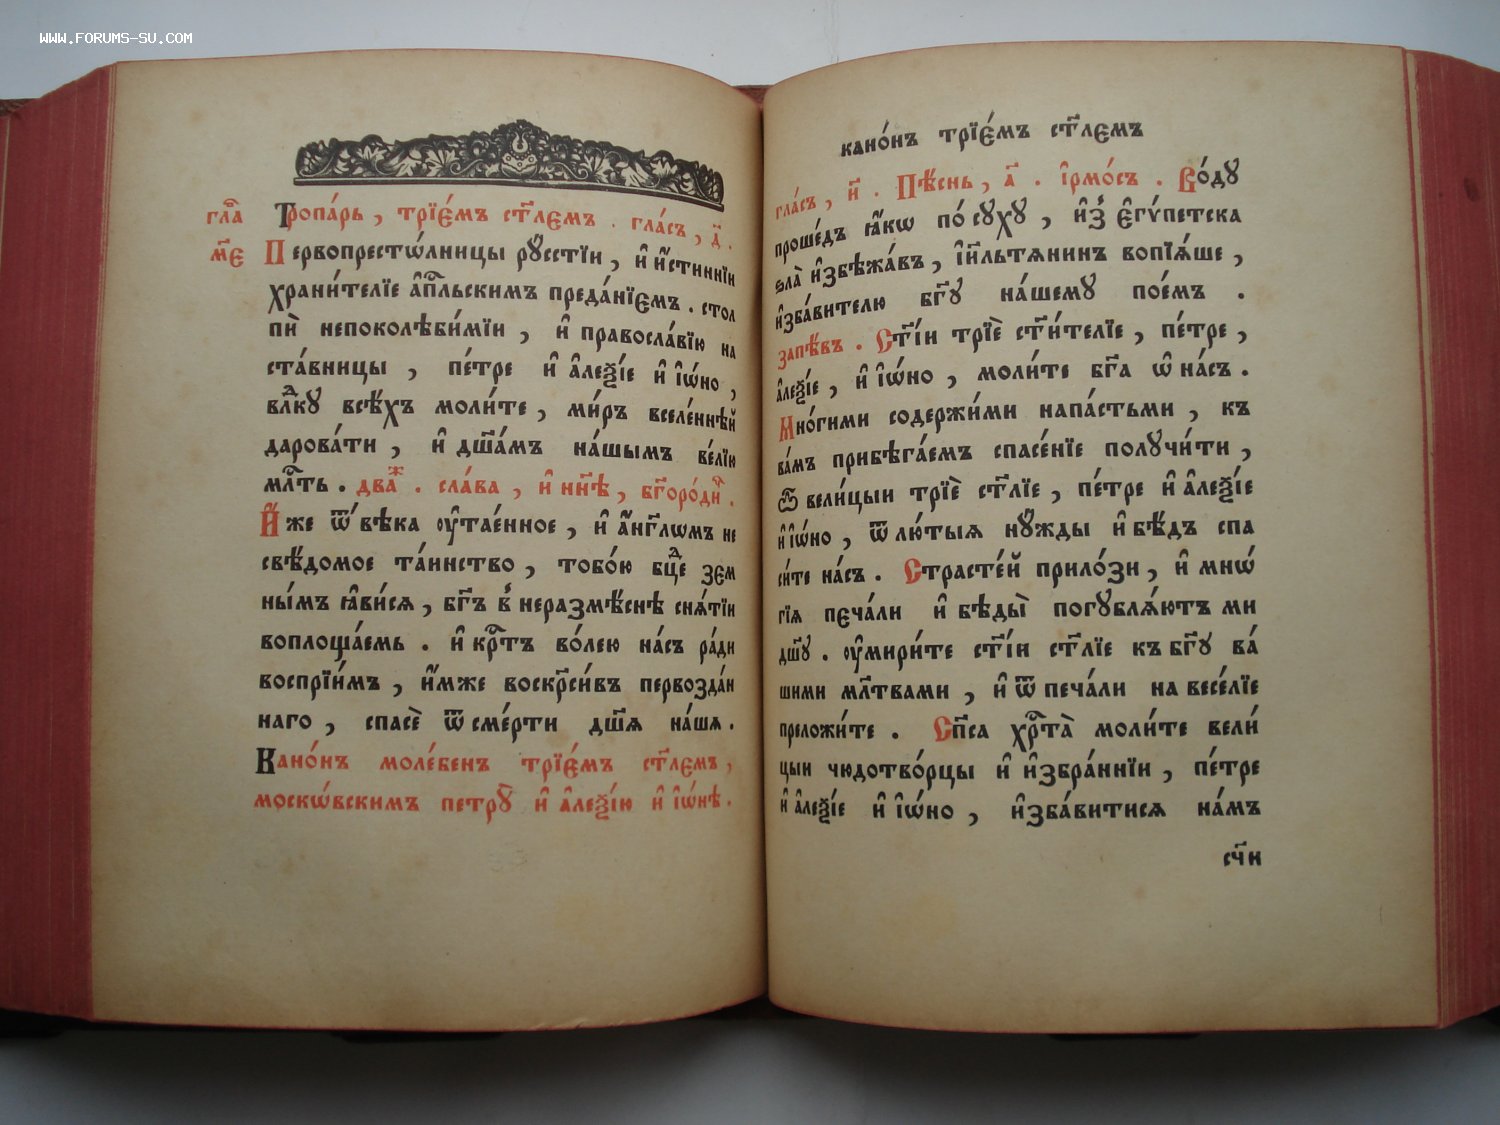 WWW.FORUMS-SU.COM
гла҃ Тропа́рь, трїе́мъ ст҃лемъ. гла́съ, д҃.
м҃е Первопресто́лницы рꙋ́сстїи, и҆ и҆́стиннїи
храни́телїе а҆пⷭ҇льскимъ преда́нїемъ. стол
пѝ непоколѣби́мїи, и҆ правосла́вїю на
ста́вницы, пе́тре и҆ а҆леѯі́е и҆ і҆ѡ́но,
влⷣкꙋ всѣ́хъ моли́те, ми́ръ вселе́ннѣй
дарова́ти, и҆ дш҃а́мъ на́шымъ ве́лїю
млⷭ҇ть. двⷤа. сла́ва, и҆ нн҃ѣ, бг҃оро́диⷱ.
И҆́же ѿ вѣ́ка ᲂу҆тае́нное, и҆ а҆́нгг҃лѡмъ не
свѣ́домое та́инство, тобо́ю бцⷣе зем
ны́мъ ꙗ҆ви́сѧ, бг҃ъ в̾ неразмѣ́снѣ снѧ́тїи
воплоща́емь. и҆ крⷭ҇тъ во́лею на́съ ра́ди
воспрїи́мъ, и҆́мже воскр҃си́въ первозда́н
наго, спасѐ ѿ сме́рти дш҃ѧ на́шѧ.
Кано́нъ моле́бенъ трїе́мъ ст҃лемъ,
моско́вскимъ петрꙋ̀ и҆ а҆леѯі́ю и҆ і҆ѡ́нѣ.
кано́нъ трїе́мъ ст҃лемъ
гла́съ, и҃. Пѣ́снь, а҃. і҆рмо́съ. Во́дꙋ
проше́дъ ꙗ҆́кѡ по́ сꙋхꙋ, и҆з̾ є҆гѵ́петска
ѕла̀ и҆збѣжа́въ, і҆и҃льтѧнинъ вопїѧ́ше,
и҆зба́вителю бг҃ꙋ на́шемꙋ пое́мъ.
запѣ́въ. Ст҃і́и трїѐ ст҃и́телїе, пе́тре,
а҆леѯі́е, и҆ і҆ѡ́но, моли́те бг҃а ѡ҆ на́съ.
Мно́гими содержи́ми напа́стьми, къ
ва́мъ прибѣга́емъ спасе́нїе полꙋчи́ти,
Ѽ вели́цыи трїѐ ст҃лїе, пе́тре и҆ а҆леѯі́е
и҆ і҆ѡ́но, ѿ лю́тыѧ нꙋ́жды и҆ бѣ́дъ спа
си́те на́съ. Страсте́й прило́зи, и҆ мнѡ́
гїѧ печа́ли и҆ бѣ́ды̀ погꙋблѧ́ютъ ми
дш҃ꙋ. ᲂу҆мири́те ст҃і́и ст҃лїе къ бг҃ꙋ ва́
шими мл҃твами, и҆ ѿ печа́ли на весе́лїе
преложи́те. Сп҃са хрⷭ҇та̀ моли́те вели́
цыи чюдотво́рцы и҆ и҆збра́ннїи, пе́тре
и҆ а҆леѯі́е и҆ і҆ѡ́но, и҆зба́витисѧ на́мъ
сч҃и